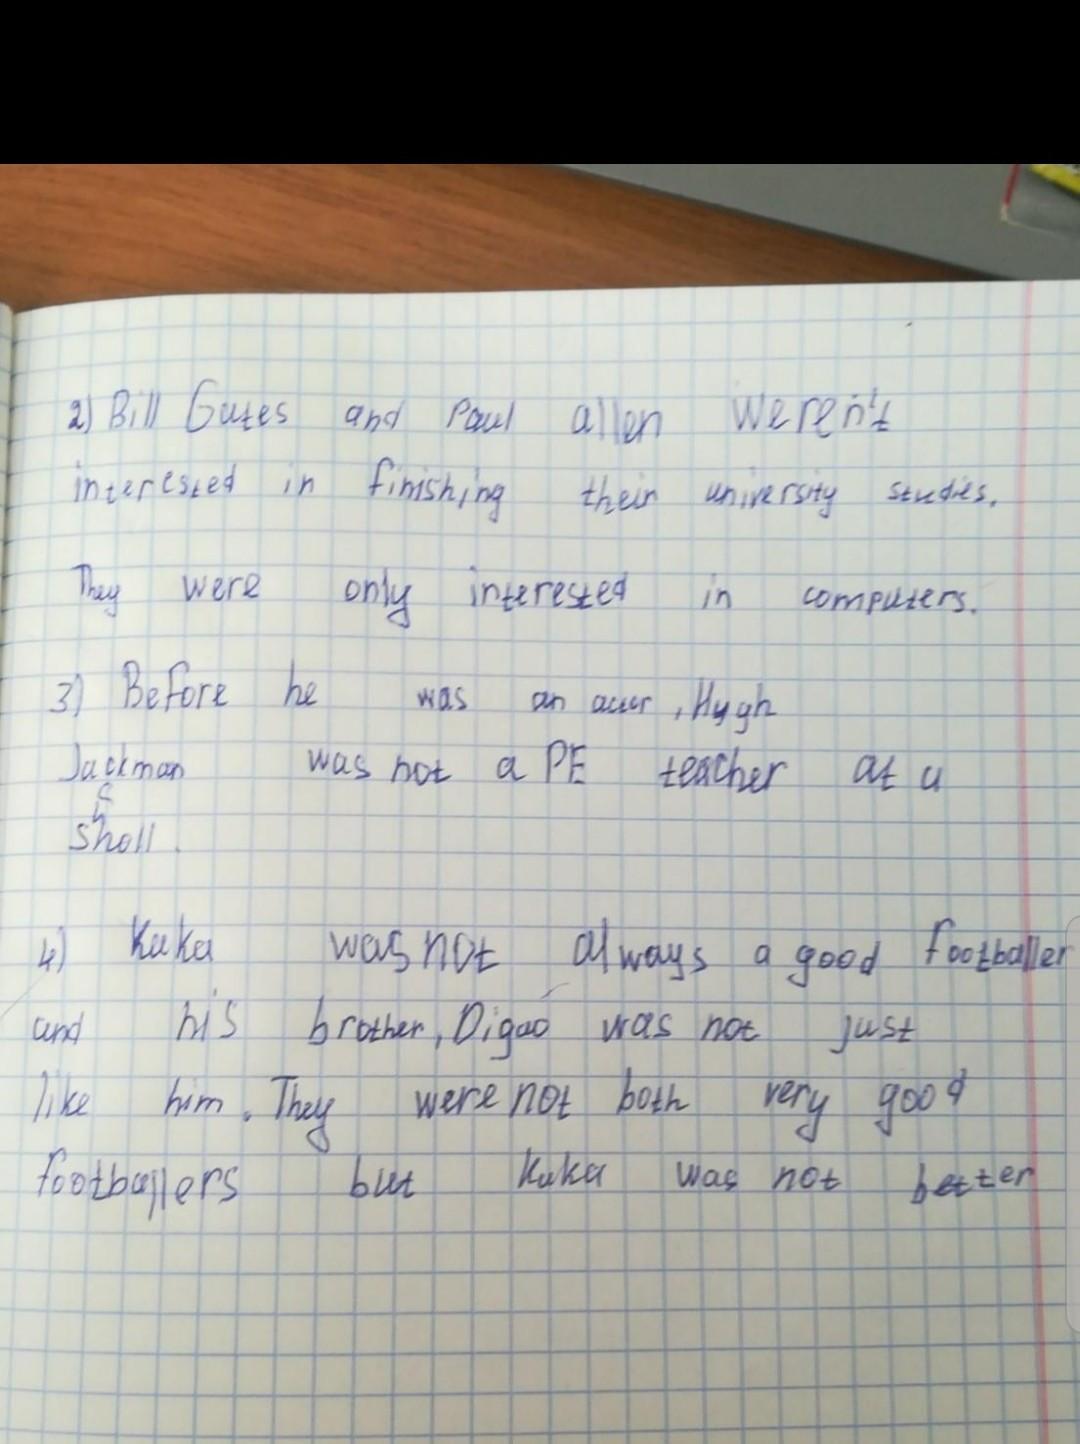 2) Bill Gates and Paul allen weren't
interested in finishing their university studies.
They were only interested in computers.
3) Before he was an acter, Hugh
Jackman was not a PE teacher at a
c
sholl.
4) Kaka was not always a good footballer
and his brother, Digao was not just
like him. They were not both very good
footballers but Kaka was not better